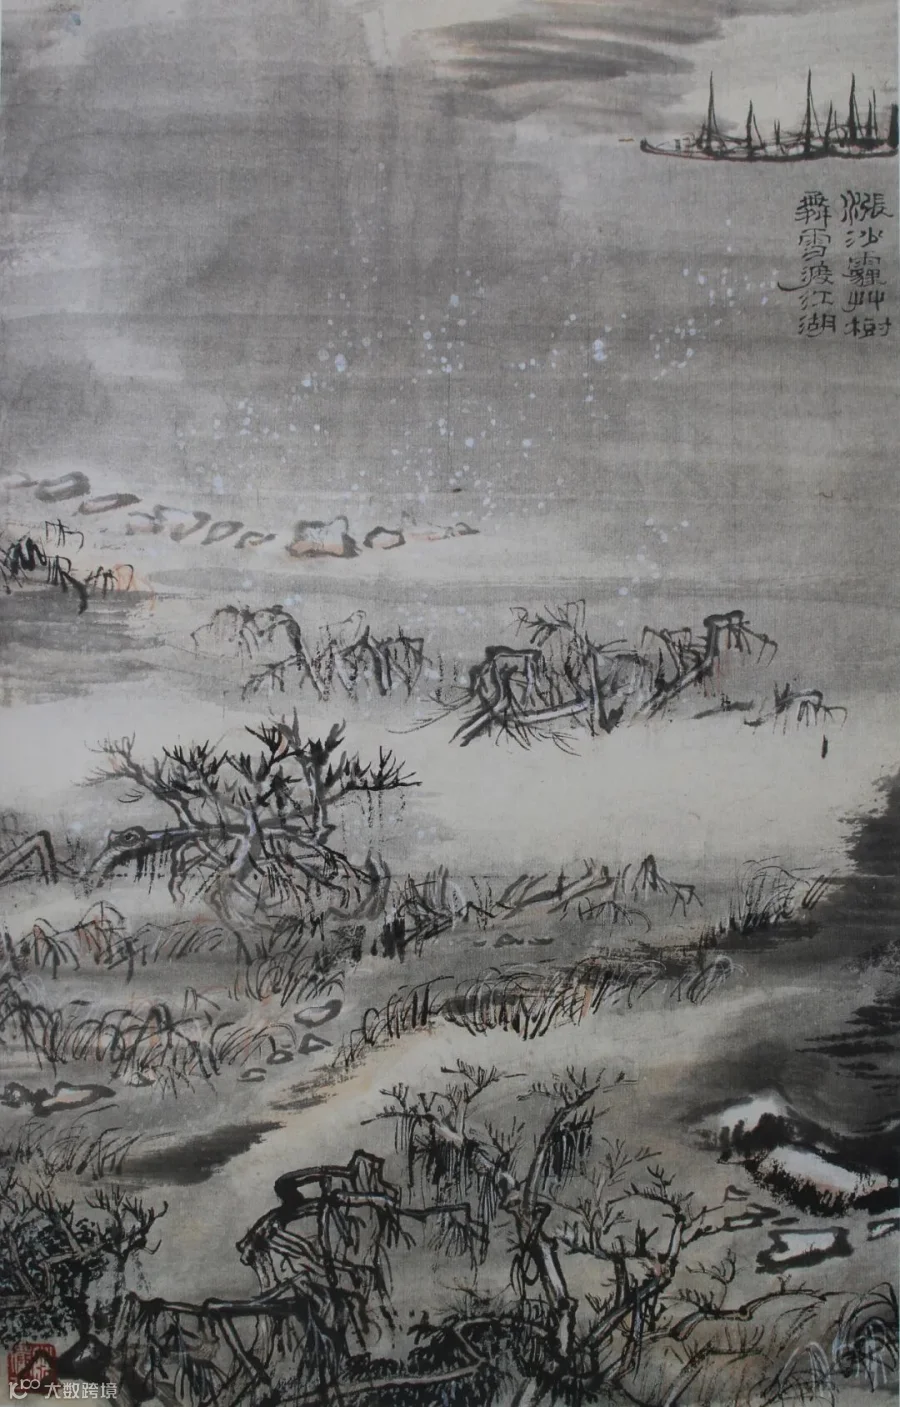 漲沙霾艸樹
舞雪渡江湖
大数跨境